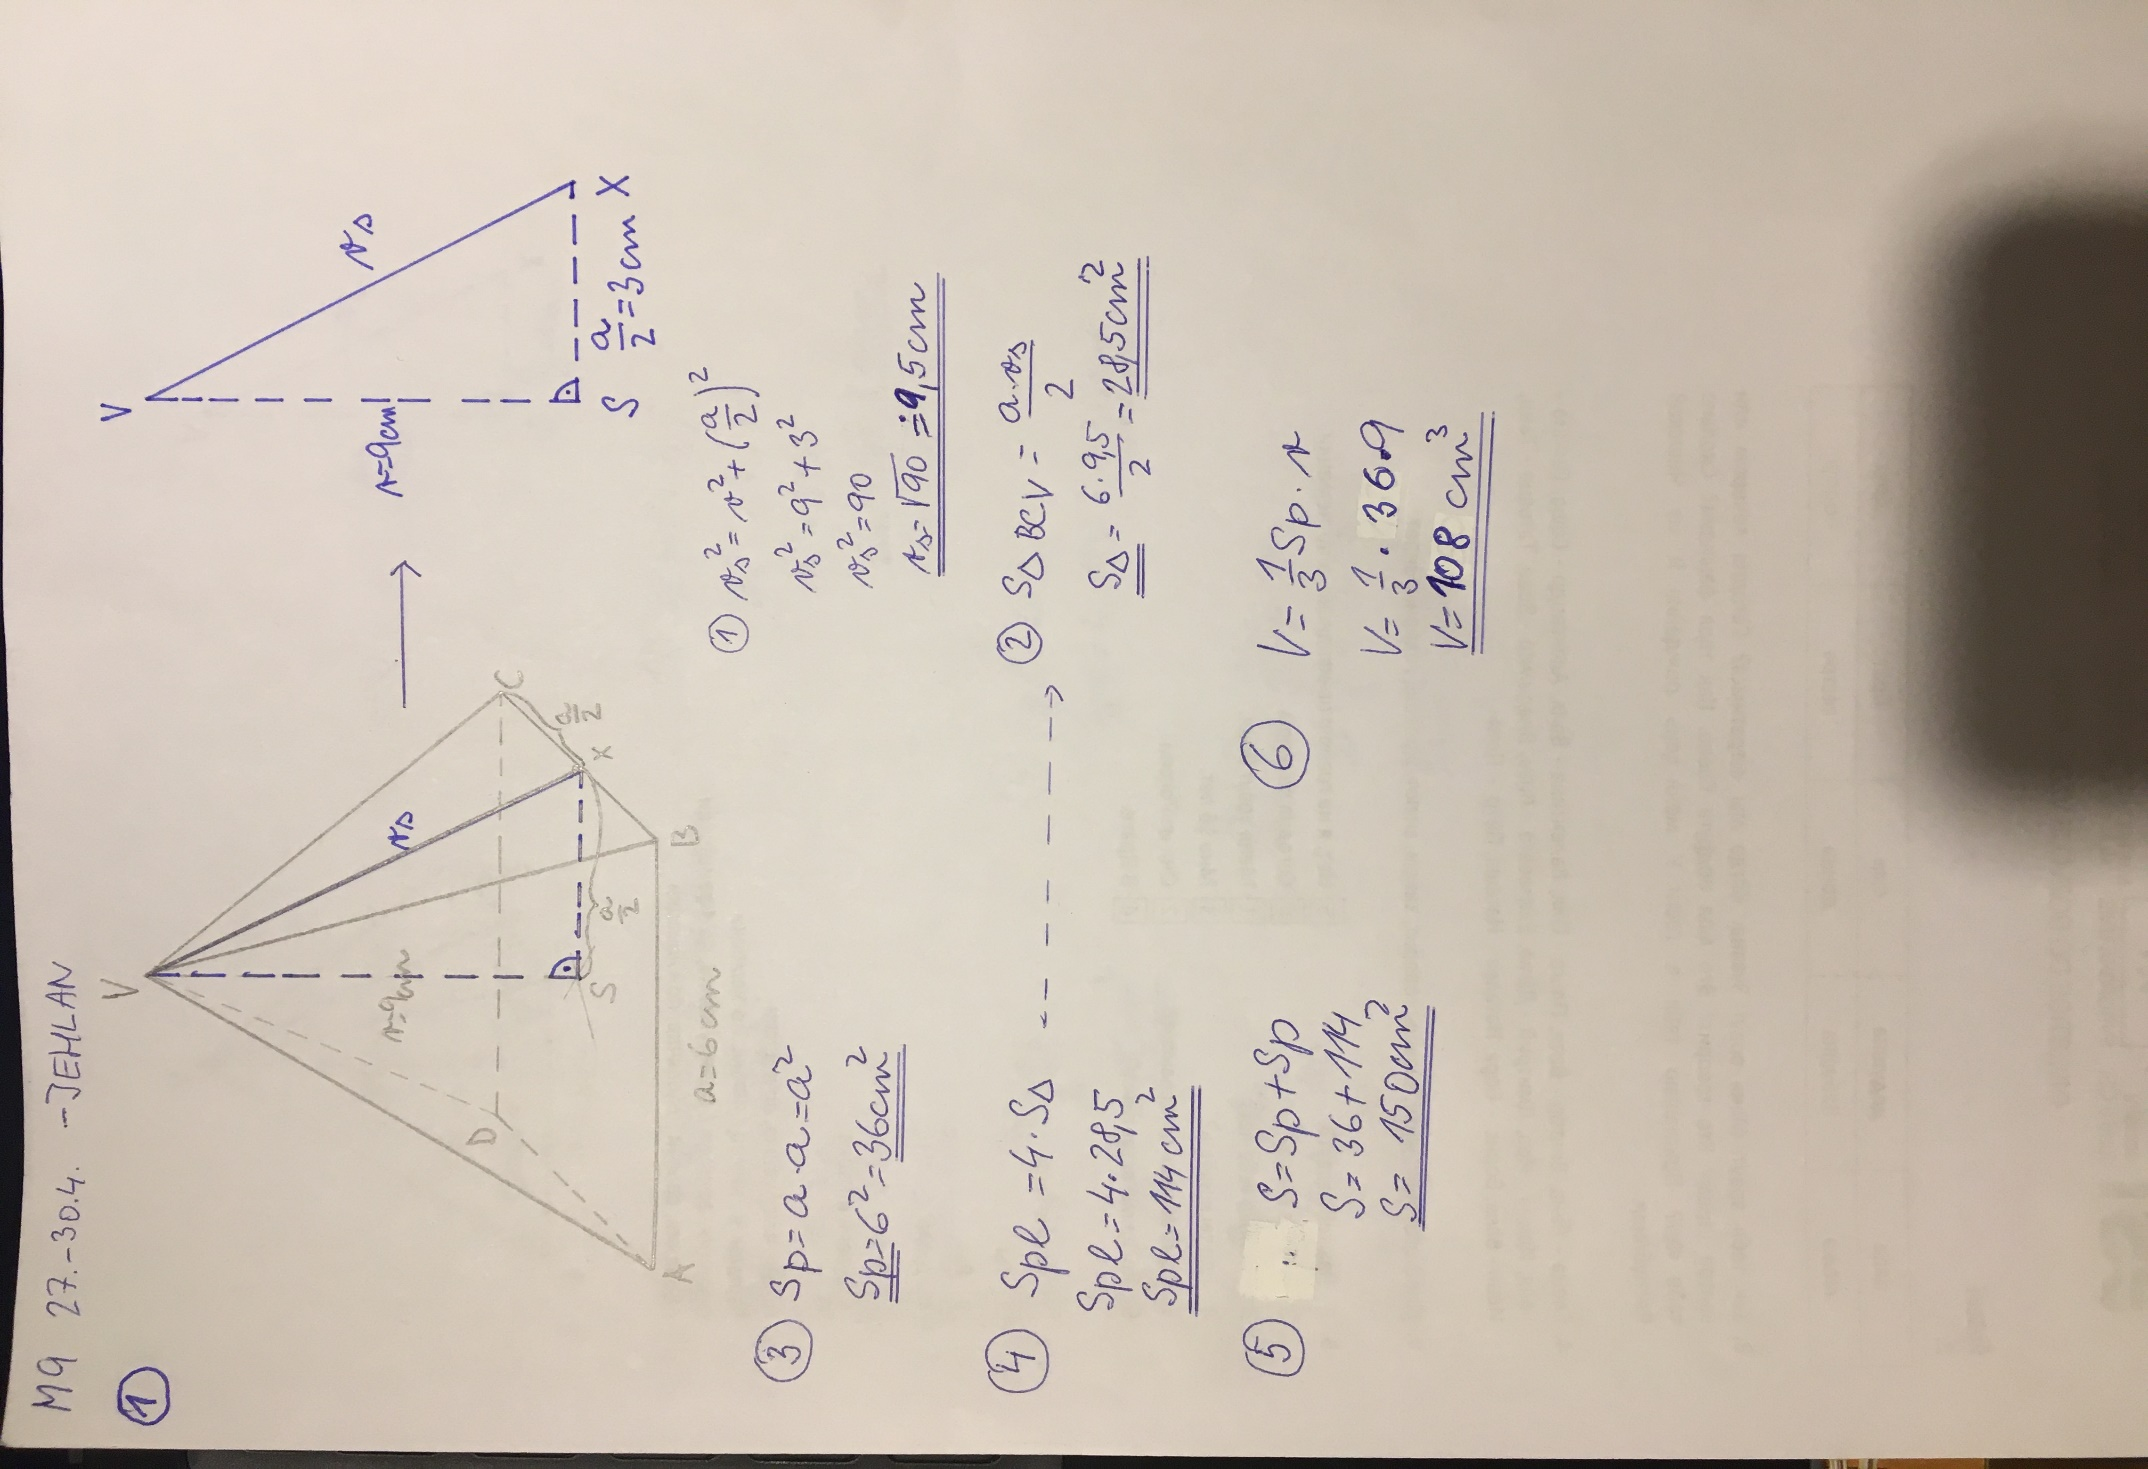 M9 27.-30.4. - JEHLAN
1
V
v=9cm
vs
D
C
S
X
a/2
a/2
A
B
a=6cm
V
v=9cm
vs
S
a/2=3cm
X
① vs²=v²+(a/2)²
vs²=9²+3²
vs²=90
vs=√90≐9,5cm
② S△BCV=a·vs/2
S△=6·9,5/2=28,5cm²
③ Sp=a·a=a²
Sp=6²=36cm²
④ Spl=4·S△
Spl=4·28,5
Spl=114cm²
⑤ S=Sp+Sp
S=36+114
S=150cm²
⑥ V=1/3 Sp·v
V=1/3·36·9
V=108 cm³